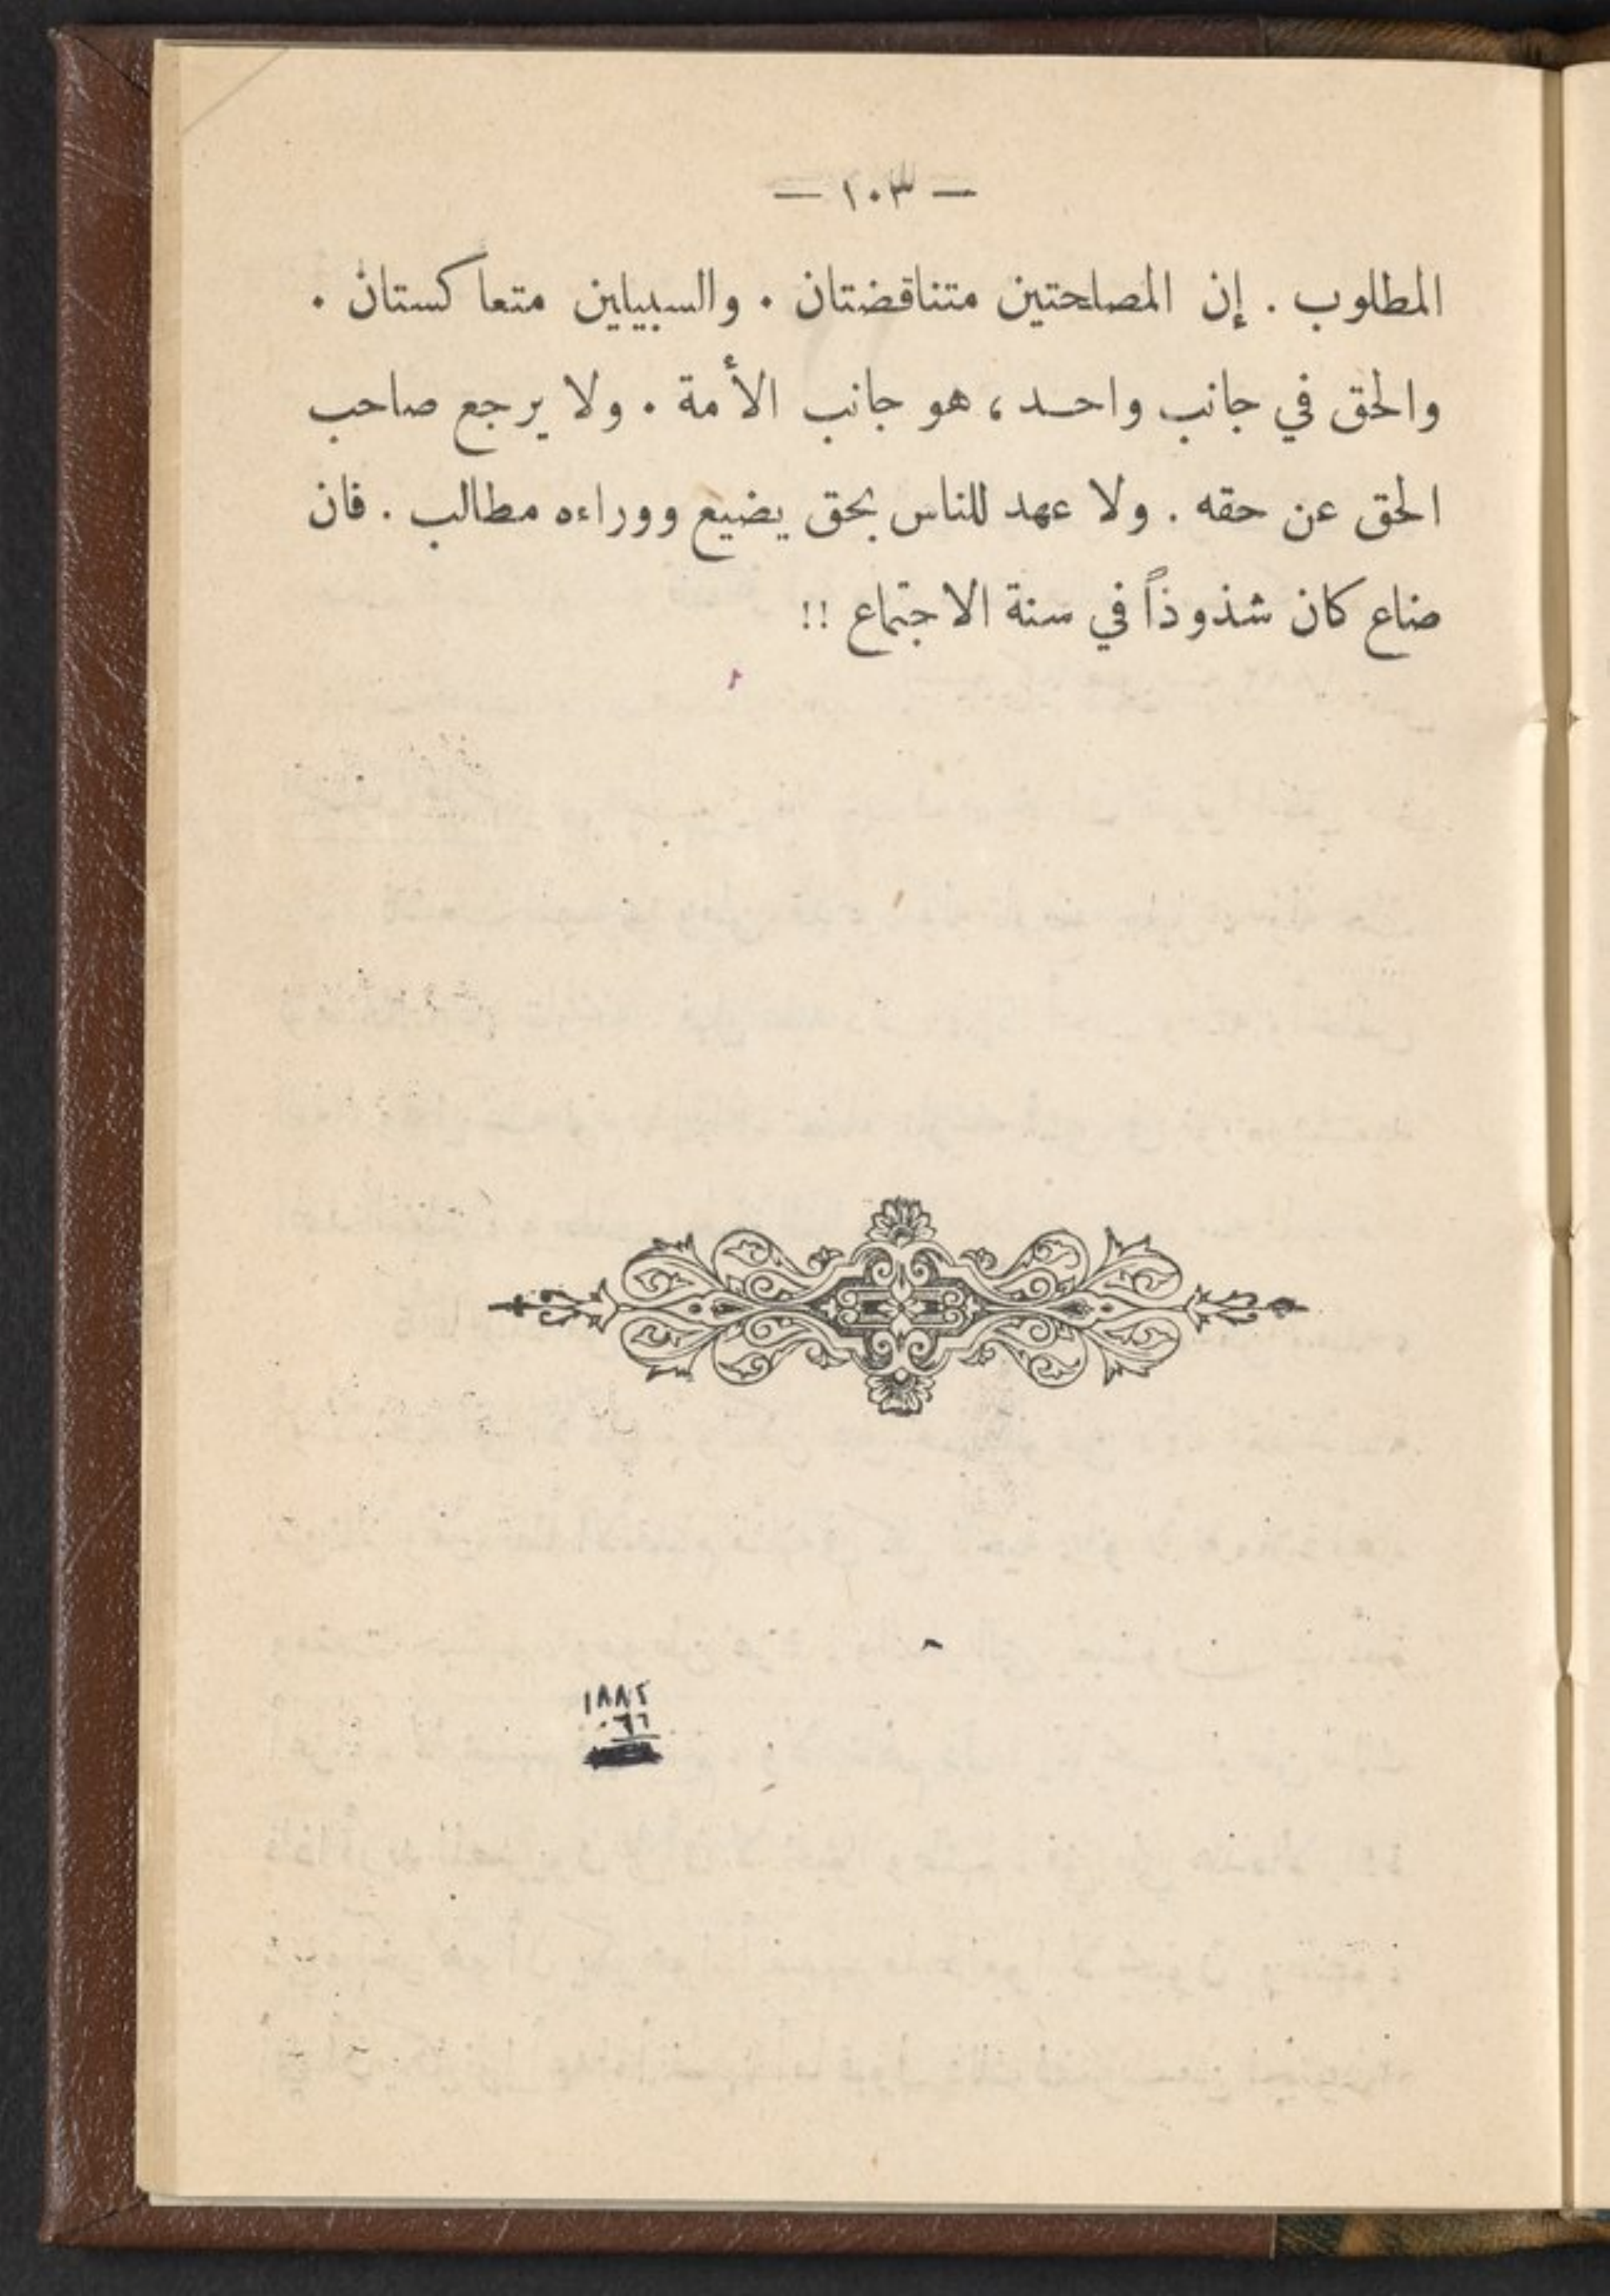 — ١٠٣ —
المطلوب . إن المصلحتين متناقضتان . والسبيلين متعاكستان .
والحق في جانب واحد ، هو جانب الأمة . ولا يرجع صاحب
الحق عن حقه . ولا عهد للناس بحق يضيع ووراءه مطالب . فان
ضاع كان شذوذاً في سنة الاجتماع !!
١٨٨٢